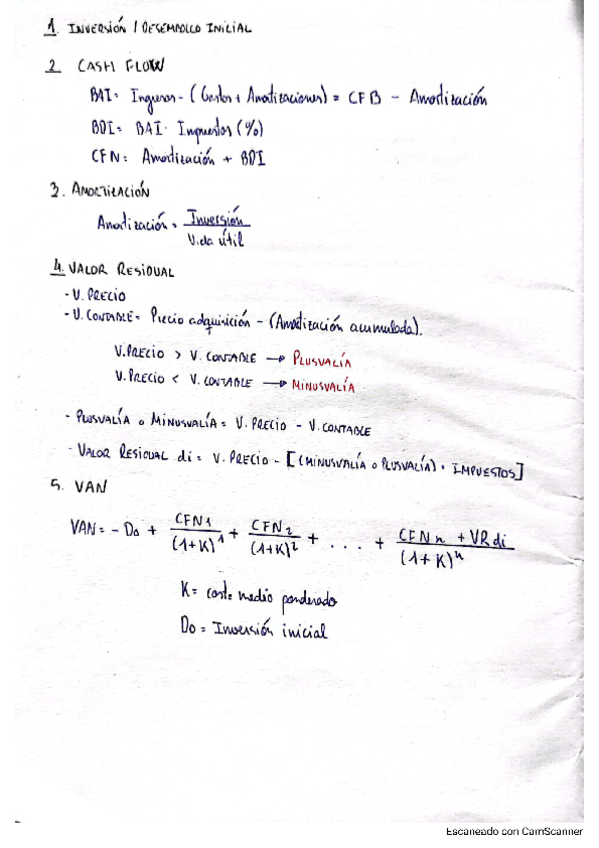 1. INVERSIÓN / DESEMBOLSO INICIAL
2 CASH FLOW
BAI = Ingresos - (Gastos + Amortizaciones) = CFB - Amortización
BDI = BAI · Impuestos (%)
CFN = Amortización + BDI
3. AMORTIZACIÓN
Amortización = Inversión / Vida útil
4. VALOR RESIDUAL
- V. PRECIO
- V. CONTABLE = Precio adquisición - (Amortización acumulada).
V. PRECIO > V. CONTABLE → PLUSVALÍA
V. PRECIO < V. CONTABLE → MINUSVALÍA
- PLUSVALÍA o MINUSVALÍA = V. PRECIO - V. CONTABLE
- VALOR RESIDUAL di = V. PRECIO - [(MINUSVALÍA o PLUSVALÍA) · IMPUESTOS]
5. VAN
VAN = - Do + CFN1 / (1+K)^1 + CFN2 / (1+K)^2 + . . . + CFNn + VRdi / (1+K)^n
K = coste medio ponderado
Do = Inversión inicial
Escaneado con CamScanner